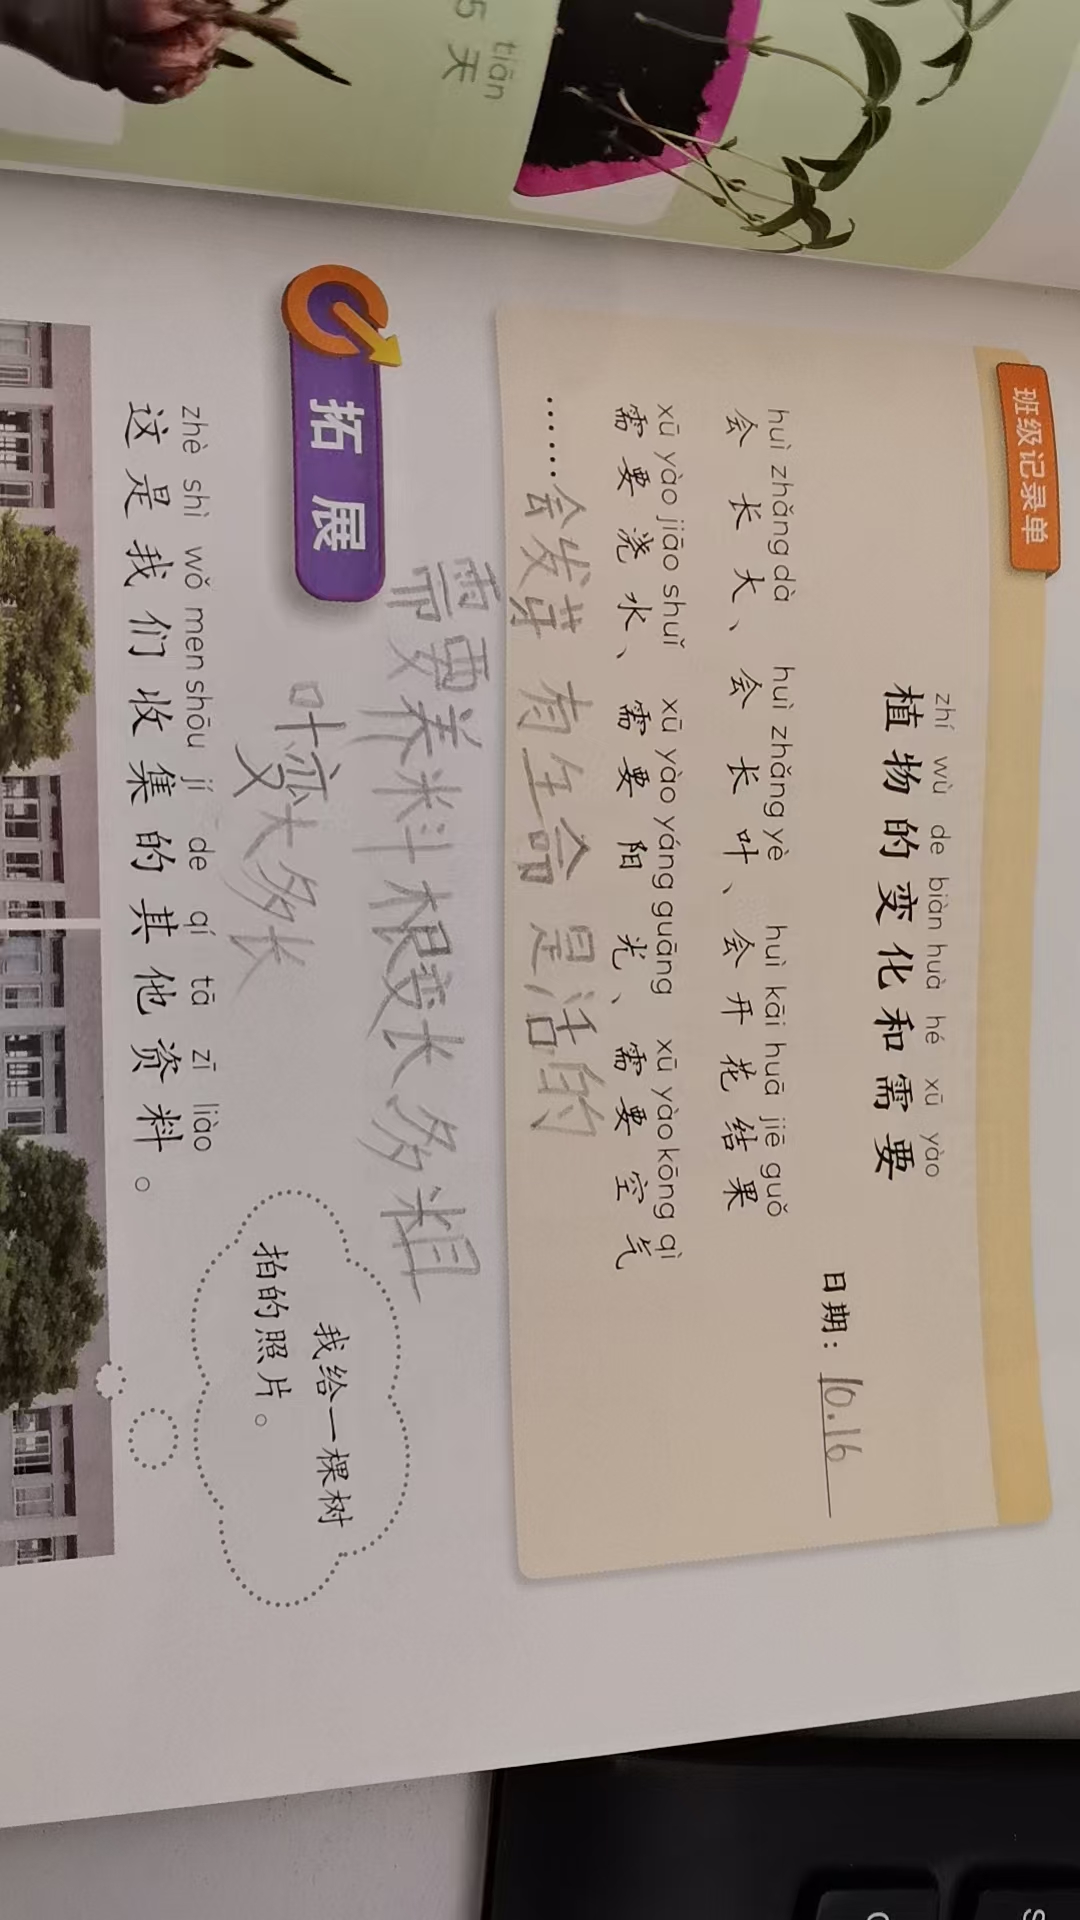 tiān
5 天
班级记录单
zhí wù de biàn huà hé xū yào
植物的变化和需要
日期：10.16
huì zhǎng dà huì zhǎng yè huì kāi huā jiē guǒ
会长大、会长叶、会开花结果
xū yào jiāo shuǐ xū yào yáng guāng xū yào kōng qì
需要浇水、需要阳光、需要空气
……会发芽 有生命 是活的
需要养料 根变长多粗
叶变大多长
拓展
我给一棵树
拍的照片。
zhè shì wǒ men shōu jí de qí tā zī liào
这是我们收集的其他资料。